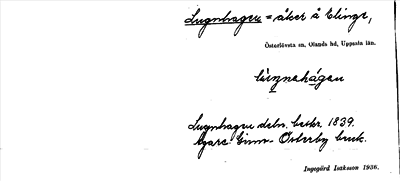 Lugnhagen = åker å Elinge,
Österlövsta sn, Olands hd, Uppsala län.
Lugnhagen deln. beskr. 1839.
Ägare Gimo-Österby bruk.
Ingegärd Isaksson 1936.